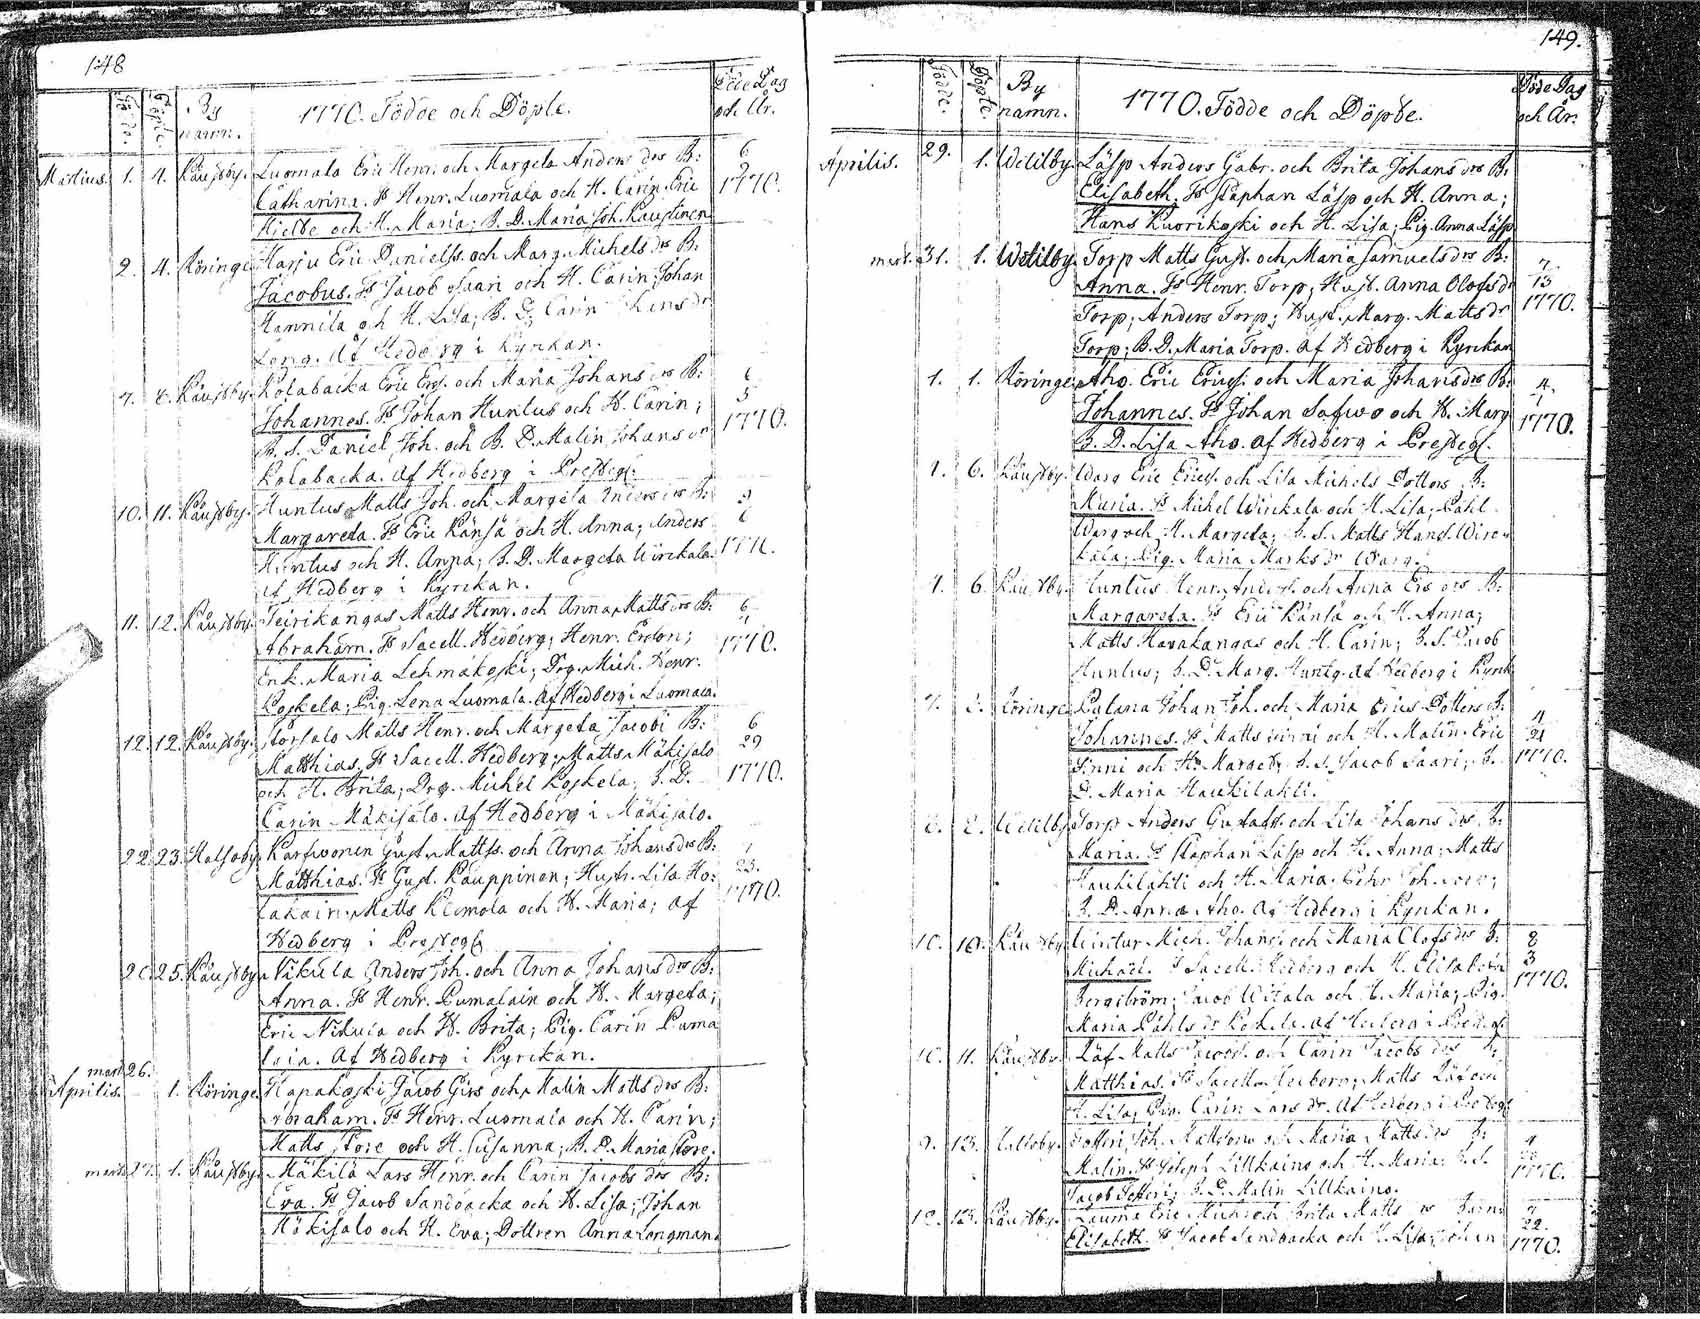 148
Födde. Döpte. By namn. 1770. Födde och Döpte. Döde Dag och År.
Martius. 1. 4. Kåustby. Luomala Eric Henr. och Margeta Anders drs B:
Catharina. Fs Henr. Luomala och H. Carin, Eric
och H. Maria; B. D. Maria Joh. Kaustinen
6 1770.
2. 4. Köringe Harju Eric Danielss. och Marg. Michels drs B:
Jacobus. Fs Jacob och H. Carin; Johan
Hannila och H. Lisa; B. D. Carin
Long. af Hedberg i Kyrkan.
7. 8. Kåustby. Kolabacka Eric Ers. och Maria Johans drs B:
Johannes. Fs Johan Huntus och H. Carin;
B. S. Daniel Joh. och B. D. Malin Johans dr
Kolabacka. af Hedberg i Presteg.
6 5 1770.
10. 11. Kåustby. Huntus Matts Joh. och Margeta Anders drs B:
Margareta. Fs Eric Känsä och H. Anna; Anders
Huntus och H. Anna; B. D. Margeta Wirckala
af Hedberg i Kyrckan.
11. 12. Kåustby. Teirikangas Matts Henr. och Anna Matts drs B:
Abraham. Fs Sacell. Hedberg; Henr.
Enk. Maria Lehmakoski; Drg. Mich. Henr.
Koskela; Pig. Lena Luomala. af Hedberg i Luomala.
6 1770.
12. 12. Kåustby. Storsalo Matts Henr. och Margeta Jacobi B:
Matthias. Fs Sacell. Hedberg; Matts Mäkisalo
och H. Brita; Drg. Michel Koskela; B. D.
Carin Mäkisalo. af Hedberg i Mäkisalo.
6 29 1770.
22. 23. Halsoby. Karfwonen Gust. Mattss. och Anna Johans drs B:
Matthias. Fs Gust. Kauppinen; Hustr. Lisa Ho-
lakain; Matts Klemola och H. Maria; af
Hedberg i Presteg.
23. 1770.
20. 25. Kåustby. Nikula Anders Joh. och Anna Johans drs B:
Anna. Fs Henr. Pumalain och H. Margeta;
Eric Nikula och H. Brita; Pig. Carin Puma
lain. af Hedberg i Kyrckan.
mart. 26.
Aprilis. 1. Köringe. Kapakoski Jacob Girs och Malin Matts drs B:
Abraham. Fs Henr. Luomala och H. Carin;
Matts Store och H. Susanna; B. D. Maria Store.
mart. 27. 1. Kåustby. Mäkilä Lars Henr. och Carin Jacobs drs B:
Eva. Fs Jacob Sandbacka och H. Lisa; Johan
Mäkisalo och H. Eva; Dottren Anna Longman
149.
Födde. Döpte. By namn. 1770. Födde och Döpte. Döde Dag och År.
Aprilis. 29. 1. Wetilby. Läsp Anders Gabr. och Brita Johans drs B:
Elisabeth. Fs Staphan Läsp och H. Anna;
Hans Kuorikoski och H. Lisa; Pig. Anna Läsp
mart. 31. 1. Wetilby. Torp Matts Gust. och Maria Samuels drs B:
Anna. Fs Henr. Torp; Hust. Anna Olofs dr
Torp; Anders Torp; Hust. Marg. Matts dr
Torp; B. D. Maria Torp. af Hedberg i Kyrckan
7 13 1770.
1. 1. Köringe. Aho. Eric Ericss. och Maria Johans drs B:
Johannes. Fs Johan Safwo och H. Marg
B. D. Lisa Aho. af Hedberg i Presteg.
4 1 1770.
1. 6. Kåustby. Warg Eric Ericss. och Lisa Michels Dotters B:
Maria. Fs Michel Wirckala och H. Lisa; Påhl
Warg och H. Margeta; B. S. Matts Hans. Wirc-
kala; Pig. Maria Marks dr Warg.
1. 6. Kåustby. Huntus Henr. Anders. och Anna Ers drs B:
Margareta. Fs Eric Känsä och H. Anna;
Matts Havakangas och H. Carin; B. S. Jacob
Huntus; B. D. Marg. Huntus. af Hedberg i Kyrk
7. Köringe Pulana Johan Joh. och Maria Erics Dotters B:
Johannes. Fs Matts och H. Malin. Eric
Finni och H. Marget; B. S. Jacob Saari; B.
D. Maria Haukilahti.
4 21 1770.
8. 8. Wetilby Torp Anders Gustafs. och Lisa Johans drs B:
Maria. Fs Staphan Läsp och H. Anna; Matts
Haukilahti och H. Maria.
B. D. Anna Aho. af Hedberg i Kyrkan.
10. 10. Kåustby. Wintur Mich. Johans. och Maria Olofs drs B:
Michael. Fs Sacell. Hedberg och H. Elisabeta
Bergström; Jacob Witala och H. Maria; Pig.
Maria Påhls dr Koskela. af Hedberg i Presteg.
8 3 1770.
10. 11. Kåustby. Räf Matts Jacobs. och Carin Jacobs drs B:
Matthias. Fs Sacell. Hedberg; Matts Räf och
H. Lisa; Pig. Carin Lars dr. af Hedberg i Presteg.
9. 13. Halsoby. Joh. Mattsons och Maria Matts drs B:
Malin. Fs Joseph Lillkains och H. Maria; B. S.
Jacob; B. D. Malin Lillkains.
1770.
12. 13. Kåustby. Eric Michels och Brita Matts dr Barn
Elisabeth. Fs Jacob Sandbacka och H. Lisa; Johan
22. 1770.